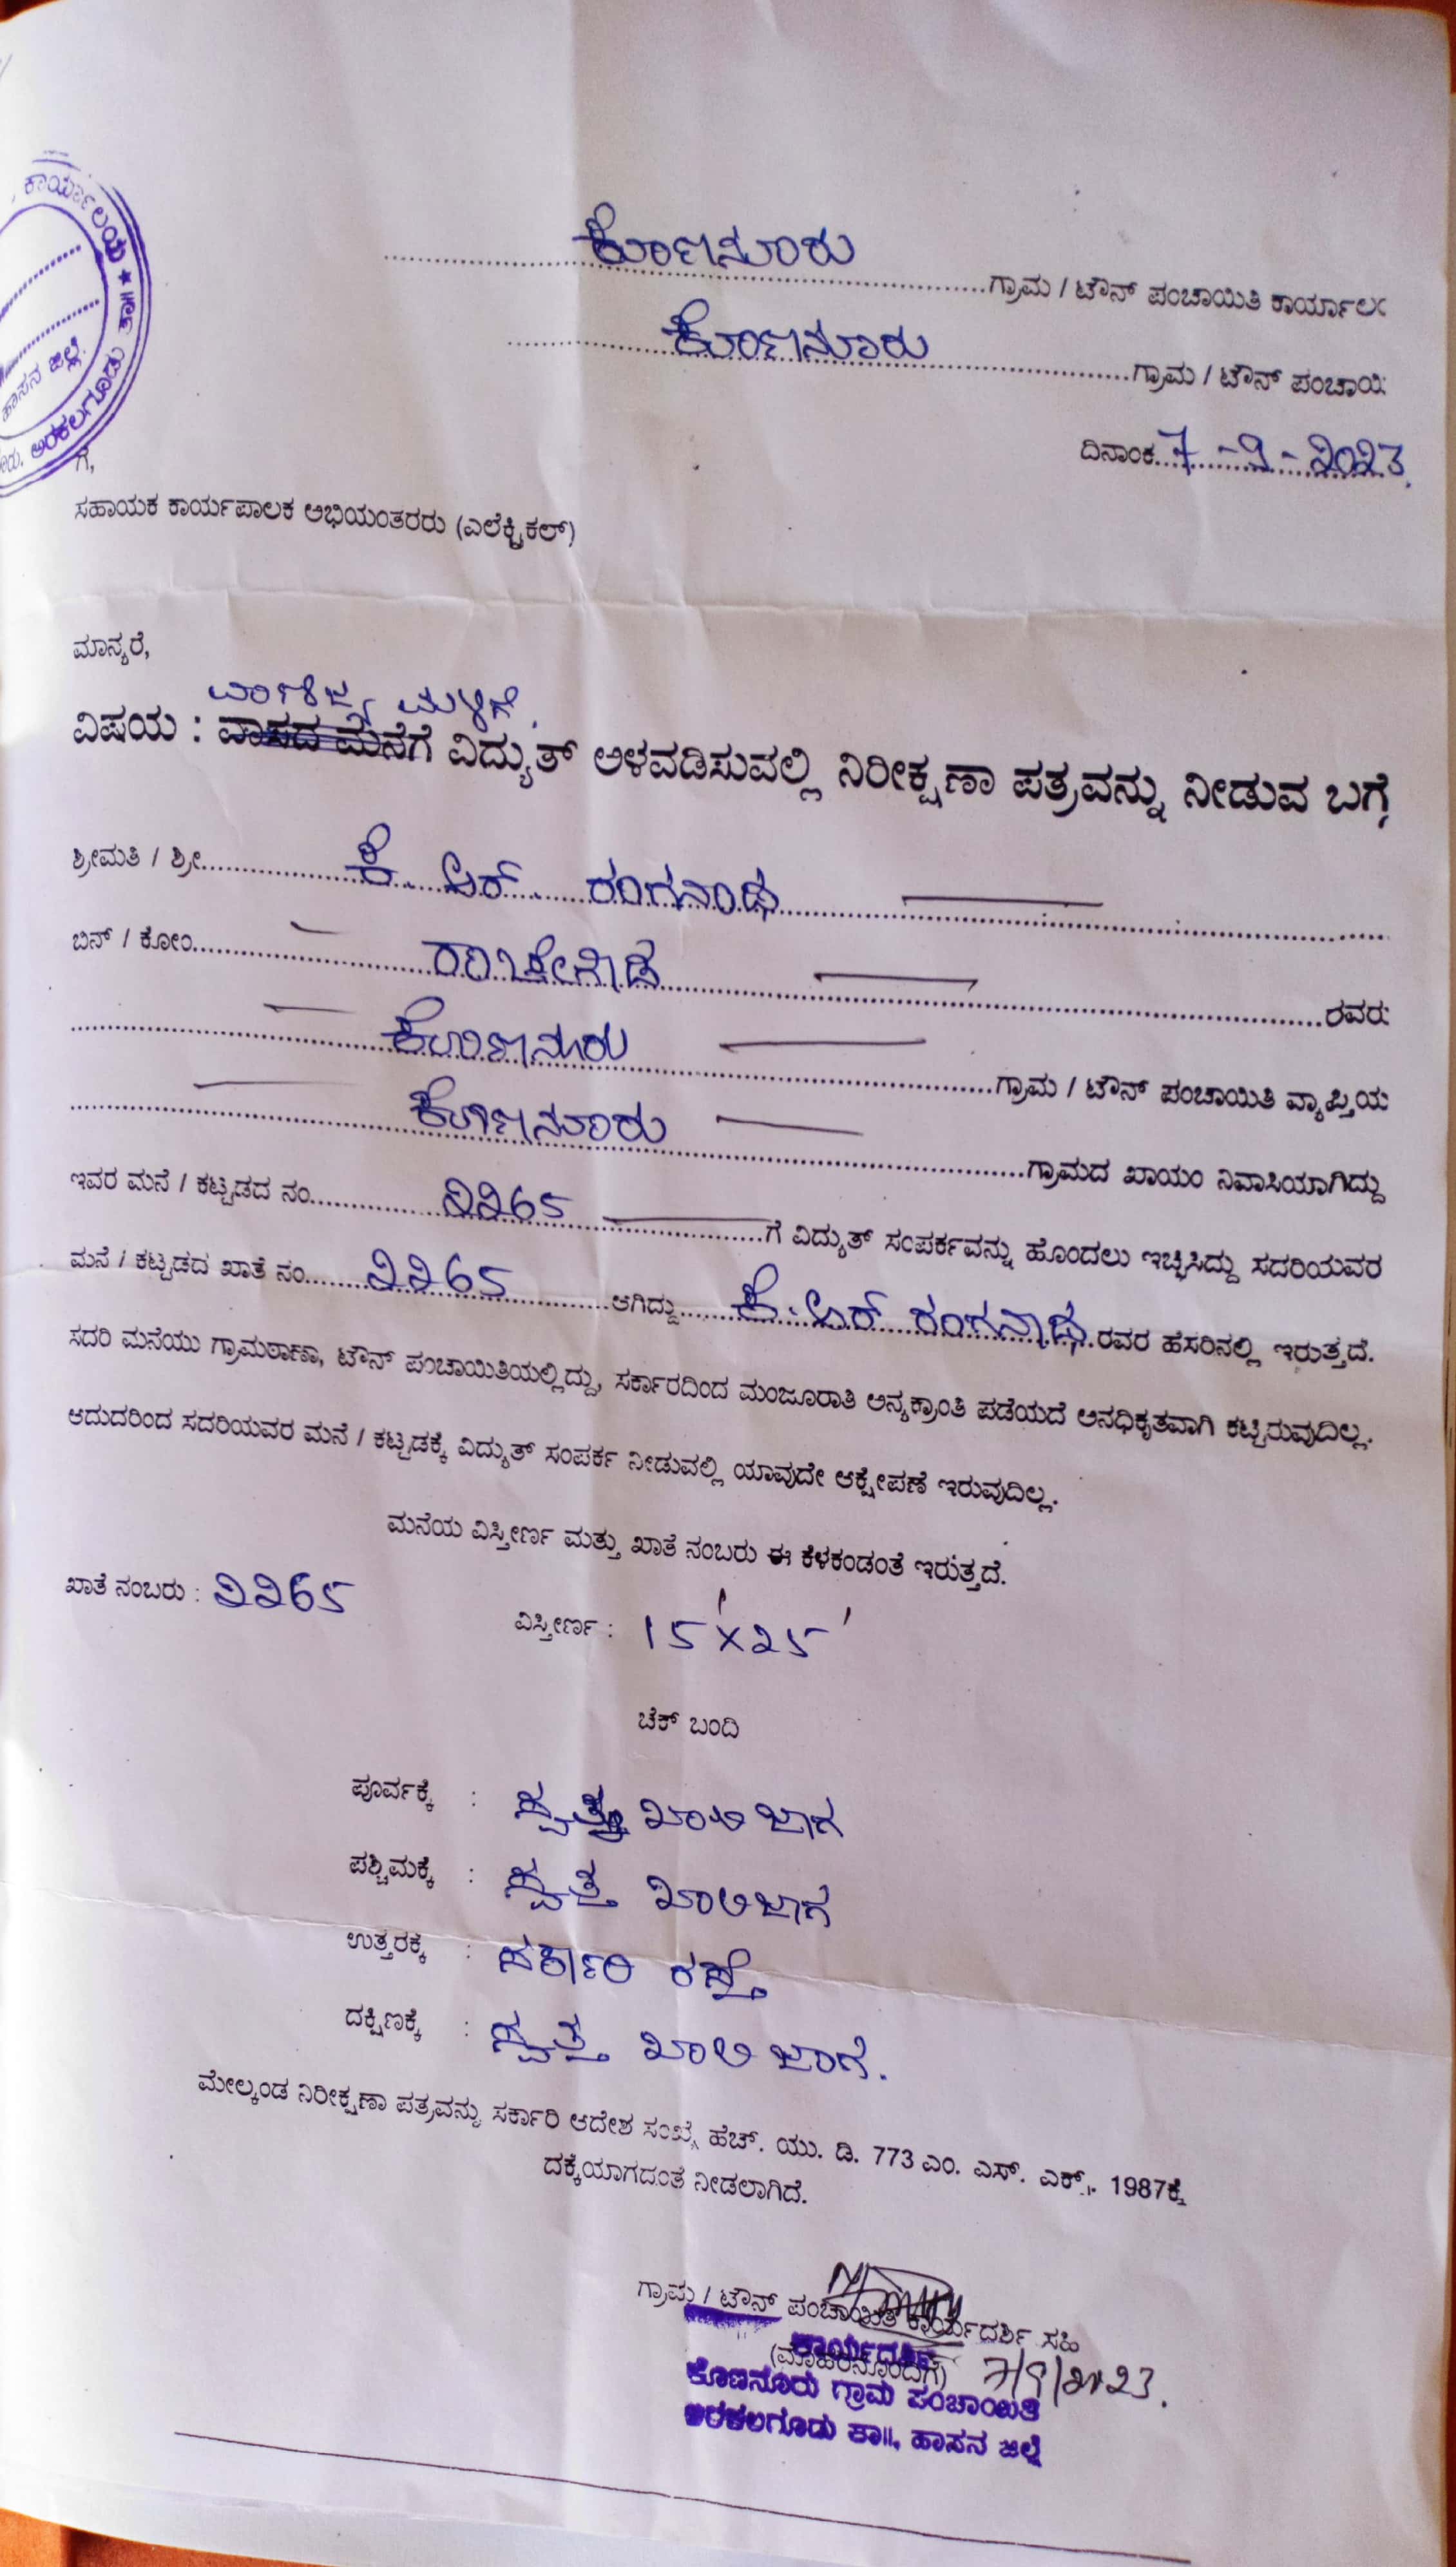 ಕಾರ್ಯಾಲಯ ★
ಅರಕಲಗೂಡು ತಾ॥
ಹಾಸನ ಜಿಲ್ಲೆ.
ಕೊಣನೂರು ಗ್ರಾಮ / ಟೌನ್ ಪಂಚಾಯಿತಿ ಕಾರ್ಯಾಲ
ಕೊಣನೂರು ಗ್ರಾಮ / ಟೌನ್ ಪಂಚಾಯಿ
ದಿನಾಂಕ 7-9-2023
ಗೆ,
ಸಹಾಯಕ ಕಾರ್ಯಪಾಲಕ ಅಭಿಯಂತರರು (ಎಲೆಕ್ಟ್ರಿಕಲ್)
ಮಾನ್ಯರೆ,
ವಾಣಿಜ್ಯ ಮಳಿಗೆ
ವಿಷಯ : ವಾಸದ ಮನೆಗೆ ವಿದ್ಯುತ್ ಅಳವಡಿಸುವಲ್ಲಿ ನಿರೀಕ್ಷಣಾ ಪತ್ರವನ್ನು ನೀಡುವ ಬಗ್ಗೆ
ಶ್ರೀಮತಿ / ಶ್ರೀ ಕೆ. ಆರ್. ರಂಗನಾಥ
ಬಿನ್ / ಕೋಂ ರವರು
ಕೊಣನೂರು ಗ್ರಾಮ / ಟೌನ್ ಪಂಚಾಯಿತಿ ವ್ಯಾಪ್ತಿಯ
ಕೊಣನೂರು ಗ್ರಾಮದ ಖಾಯಂ ನಿವಾಸಿಯಾಗಿದ್ದು
ಇವರ ಮನೆ / ಕಟ್ಟಡದ ನಂ. 2265 ಗೆ ವಿದ್ಯುತ್ ಸಂಪರ್ಕವನ್ನು ಹೊಂದಲು ಇಚ್ಛಿಸಿದ್ದು ಸದರಿಯವರ
ಮನೆ / ಕಟ್ಟಡದ ಖಾತೆ ನಂ. 2265 ಆಗಿದ್ದು ಕೆ. ಆರ್ ರಂಗನಾಥ ರವರ ಹೆಸರಿನಲ್ಲಿ ಇರುತ್ತದೆ.
ಸದರಿ ಮನೆಯು ಗ್ರಾಮಠಾಣಾ, ಟೌನ್ ಪಂಚಾಯಿತಿಯಲ್ಲಿದ್ದು, ಸರ್ಕಾರದಿಂದ ಮಂಜೂರಾತಿ ಅನ್ಯಕ್ರಾಂತಿ ಪಡೆಯದೆ ಅನಧಿಕೃತವಾಗಿ ಕಟ್ಟಿರುವುದಿಲ್ಲ.
ಆದುದರಿಂದ ಸದರಿಯವರ ಮನೆ / ಕಟ್ಟಡಕ್ಕೆ ವಿದ್ಯುತ್ ಸಂಪರ್ಕ ನೀಡುವಲ್ಲಿ ಯಾವುದೇ ಆಕ್ಷೇಪಣೆ ಇರುವುದಿಲ್ಲ.
ಮನೆಯ ವಿಸ್ತೀರ್ಣ ಮತ್ತು ಖಾತೆ ನಂಬರು ಈ ಕೆಳಕಂಡಂತೆ ಇರುತ್ತದೆ.
ಖಾತೆ ನಂಬರು : 2265
ವಿಸ್ತೀರ್ಣ : 15'X25'
ಚೆಕ್ ಬಂದಿ
ಪೂರ್ವಕ್ಕೆ : ಸ್ವತ್ತು ಖಾಲಿ ಜಾಗ
ಪಶ್ಚಿಮಕ್ಕೆ : ಸ್ವತ್ತ ಖಾಲಿ ಜಾಗ
ಉತ್ತರಕ್ಕೆ : ಸರ್ಕಾರಿ ರಸ್ತೆ
ದಕ್ಷಿಣಕ್ಕೆ : ಸ್ವತ್ತ ಖಾಲಿ ಜಾಗೆ.
ಮೇಲ್ಕಂಡ ನಿರೀಕ್ಷಣಾ ಪತ್ರವನ್ನು ಸರ್ಕಾರಿ ಆದೇಶ ಸಂಖ್ಯೆ ಹೆಚ್. ಯು. ಡಿ. 773 ಎಂ. ಎಸ್. ಎಕ್ಸ್. 1987ಕ್ಕೆ
ದಕ್ಕೆಯಾಗದಂತೆ ನೀಡಲಾಗಿದೆ.
ಗ್ರಾಮ / ಟೌನ್ ಪಂಚಾಯಿತಿ ಕಾರ್ಯದರ್ಶಿ ಸಹಿ
(ಮೊಹರಿನೊಂದಿಗೆ) 7/9/2023.
ಕಾರ್ಯದರ್ಶಿ
ಕೊಣನೂರು ಗ್ರಾಮ ಪಂಚಾಯಿತಿ
ಅರಕಲಗೂಡು ತಾ॥, ಹಾಸನ ಜಿಲ್ಲೆ